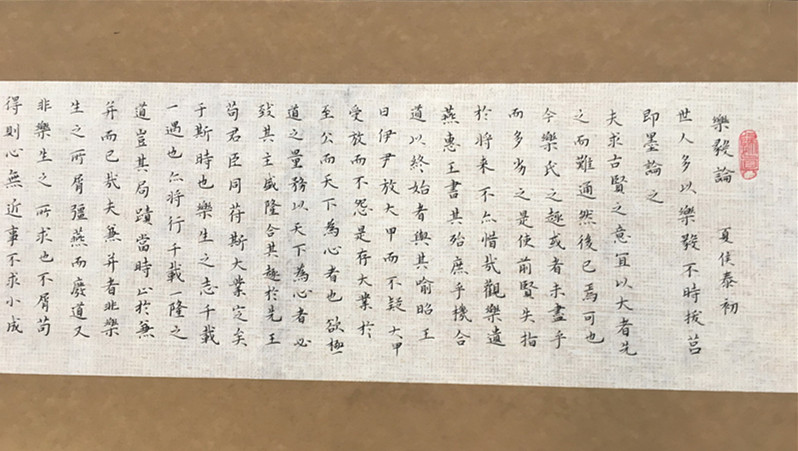 樂毅論 夏侯泰初
世人多以樂毅不時拔莒
即墨論之
夫求古賢之意宜以大者先
之而難通然後已焉可也
今樂氏之趣或者未盡乎
而多劣之是使前賢失指
於将来不亦惜哉觀樂遺
燕惠王書其殆庶乎機合
道以終始者與其喻昭王
曰伊尹放大甲而不疑大甲
受放而不怨是存大業於
至公而天下為心者也欲極
道之量務以天下為心者必
致其主盛隆合其趣於先王
苟君臣同苻斯大業定矣
于斯時也樂生之志千載
一遇也亦将行千載一隆之
道豈其局蹟當時止於兼
并而已哉夫兼并者非樂
生之所屑彊燕而廢道又
非樂生之所求也不屑苟
得則心無近事不求小成